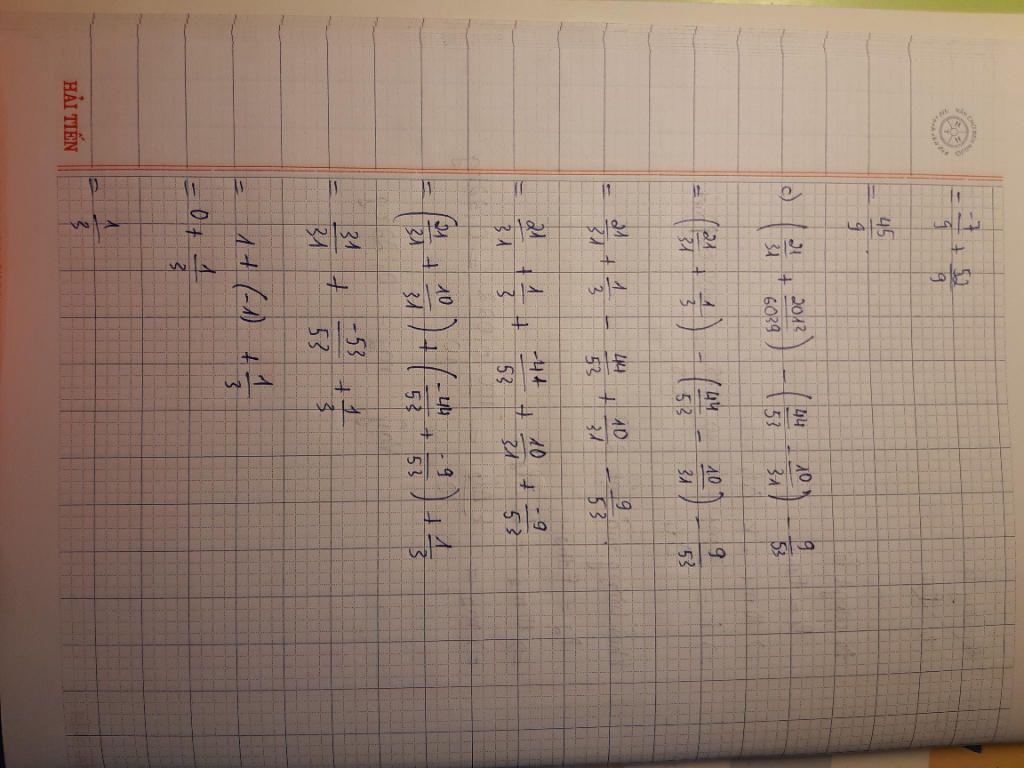 = -7/9 + 52/9
= 45/9
c) (21/31 + 2013/6039) - (44/53 - 10/31) - 9/53
= (21/31 + 1/3) - (44/53 - 10/31) - 9/53
= 21/31 + 1/3 - 44/53 + 10/31 - 9/53
= 21/31 + 1/3 + -44/53 + 10/31 + -9/53
= (21/31 + 10/31) + (-44/53 + -9/53) + 1/3
= 31/31 + -53/53 + 1/3
= 1 + (-1) + 1/3
= 0 + 1/3
= 1/3
HẢI TIẾN